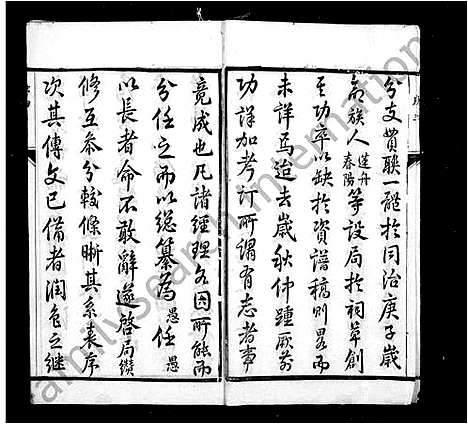 分支貫联一禮於同治庚子歲
族人蓬舟春陽等設局於祠草創
其功率以缺於資譜稿則畧而
未詳焉迨去歲秋仲踵厥前
功詳加考訂所謂有志者事
竟成也凡諸經理各因所能而
分任之而以總纂為愚任愚
以長者命不敢辭遂啓局纘
修互叅分較條晰其系表序
次其傳文已備者潤色之继